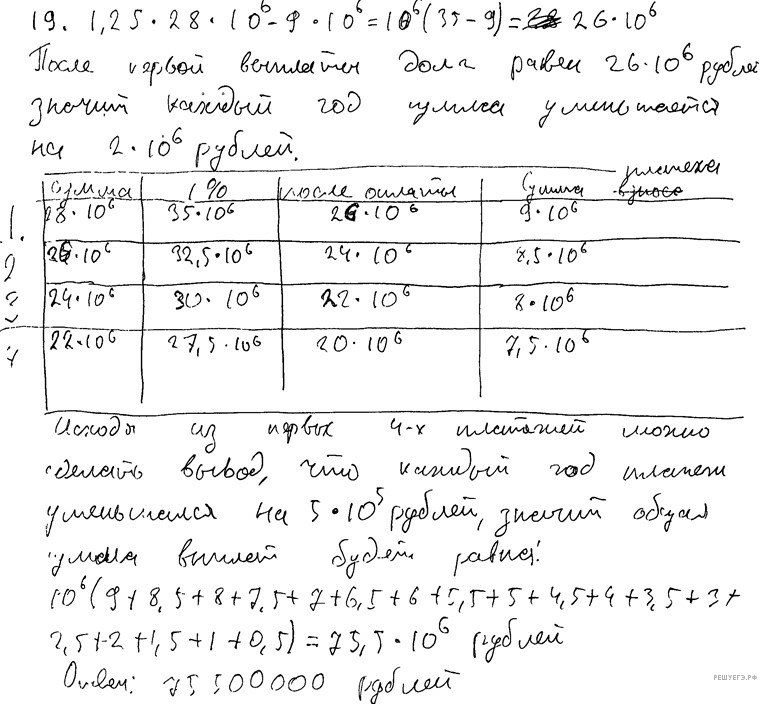 19. 1,25 · 28 · 10⁶ - 9 · 10⁶ = 10⁶ (35 - 9) = 26 · 10⁶
После первой выплаты долг равен 26·10⁶ рублей
значит каждый год сумма уменьшается
на 2·10⁶ рублей.
сумма 1% после оплаты Сумма платежа
1. 28·10⁶ 35·10⁶ 26·10⁶ 9·10⁶
2 26·10⁶ 32,5·10⁶ 24·10⁶ 8,5·10⁶
3 24·10⁶ 30·10⁶ 22·10⁶ 8·10⁶
4 22·10⁶ 27,5·10⁶ 20·10⁶ 7,5·10⁶
Исходя из первых 4-х платежей можно
сделать вывод, что каждый год платеж
уменьшался на 5·10⁵ рублей, значит общая
сумма выплат будет равна:
10⁶ (9 + 8,5 + 8 + 7,5 + 7 + 6,5 + 6 + 5,5 + 5 + 4,5 + 4 + 3,5 + 3 +
2,5 + 2 + 1,5 + 1 + 0,5) = 75,5·10⁶ рублей
Ответ: 75 500000 рублей
РЕШУЕГЭ.РФ